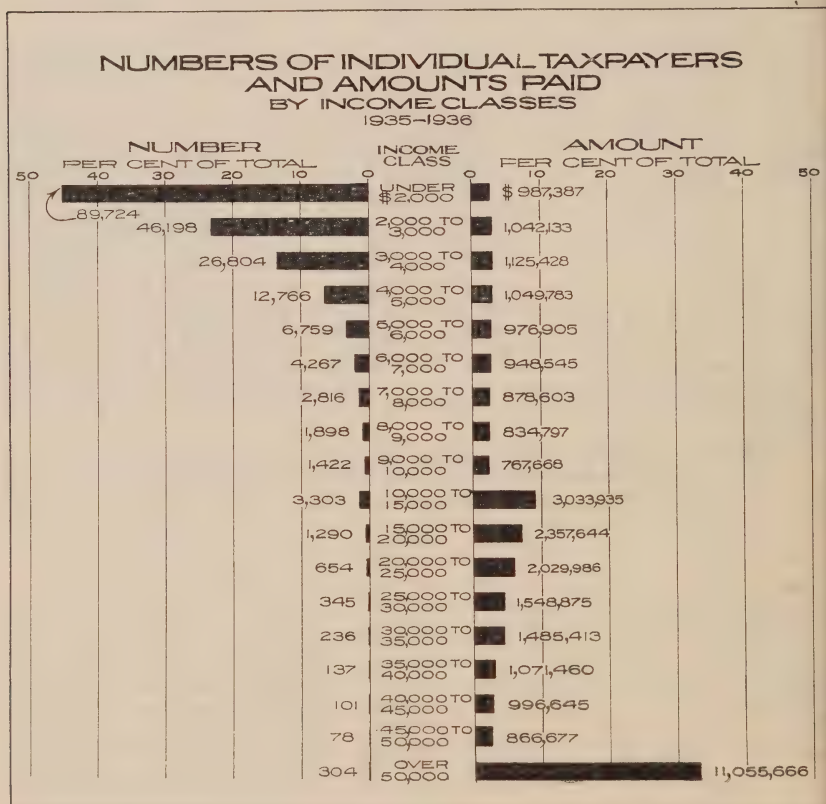 NUMBERS OF INDIVIDUAL TAXPAYERS
AND AMOUNTS PAID
BY INCOME CLASSES
1935-1936
NUMBER
PER CENT OF TOTAL
INCOME
CLASS
AMOUNT
PER CENT OF TOTAL
50 40 30 20 10 0 0 10 20 30 40 50
89,724 UNDER $2,000 $987,387
46,198 2,000 TO 3,000 1,042,133
26,804 3,000 TO 4,000 1,125,428
12,766 4,000 TO 5,000 1,049,783
6,759 5,000 TO 6,000 976,905
4,267 6,000 TO 7,000 948,545
2,816 7,000 TO 8,000 878,603
1,898 8,000 TO 9,000 834,797
1,422 9,000 TO 10,000 767,668
3,303 10,000 TO 15,000 3,033,935
1,290 15,000 TO 20,000 2,357,644
654 20,000 TO 25,000 2,029,986
345 25,000 TO 30,000 1,548,875
236 30,000 TO 35,000 1,485,413
137 35,000 TO 40,000 1,071,460
101 40,000 TO 45,000 996,645
78 45,000 TO 50,000 866,677
304 OVER 50,000 11,055,666